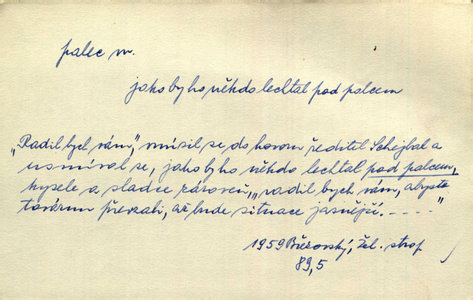 palec m.
jako by ho někdo lechtal pod palcem
„Radil bych vám," mísil se do hovoru ředitel Schejbal a
usmíval se, jako by ho někdo lechtal pod palcem,
kysele a sladce zároveň, „radil bych vám, abyste
továrnu převzali, až bude situace jasnější. ...."
1959 Březovský, Žel. strop
89,5